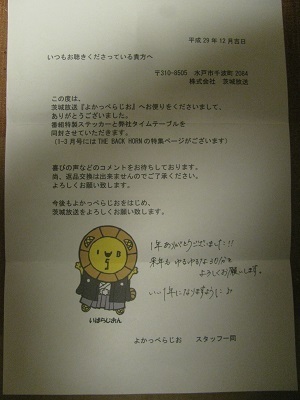 平成29年12月吉日
いつもお聴きくださっている貴方へ
〒310-8505 水戸市千波町2084
株式会社 茨城放送
この度は、
茨城放送『よかっぺらじお』へお便りをくださいまして、
ありがとうございました。
番組特製ステッカーと弊社タイムテーブルを
同封させていただきます。
(1-3月号にはTHE BACK HORNの特集ページがございます)
喜びの声などのコメントをお待ちしております。
尚、返品交換は出来ませんのでご了承ください。
よろしくお願い致します。
今後もよかっぺらじおをはじめ、
茨城放送をよろしくお願い致します。
1年ありがとうございました!!
来年もゆるゆるな30分を
よろしくお願いします。
いい1年になりますように
いばらじおん
よかっぺらじお スタッフ一同